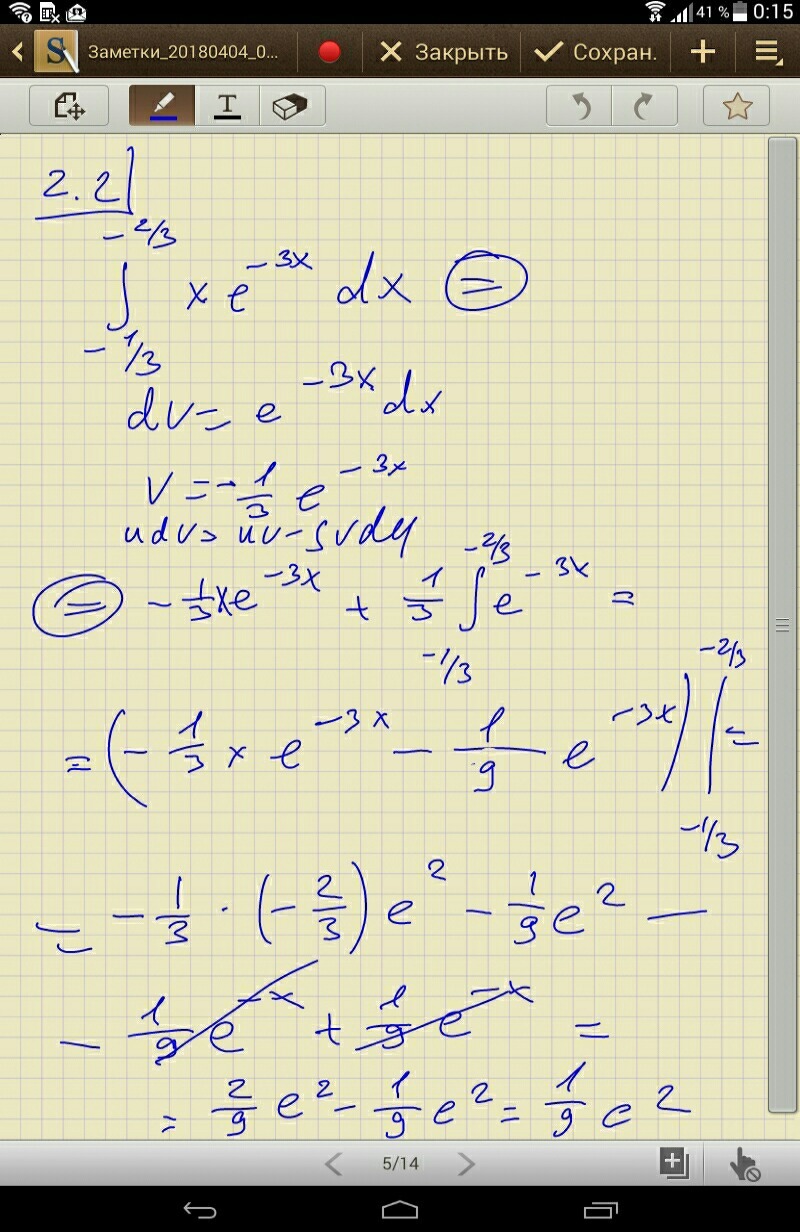 41 % 0:15
Заметки_20180404_0... Закрыть Сохран.
T
2.2
-2/3
∫ x e^{-3x} dx =
-1/3
dv = e^{-3x} dx
v = -1/3 e^{-3x}
udv = uv - ∫vdu
= -1/3 x e^{-3x} + 1/3 ∫_{-1/3}^{-2/3} e^{-3x} =
= (-1/3 x e^{-3x} - 1/9 e^{-3x}) |_{-1/3}^{-2/3} =
= -1/3 · (-2/3) e^2 - 1/9 e^2 -
- 1/9 e^{-x} + 1/9 e^{-x} =
= 2/9 e^2 - 1/9 e^2 = 1/9 e^2
5/14